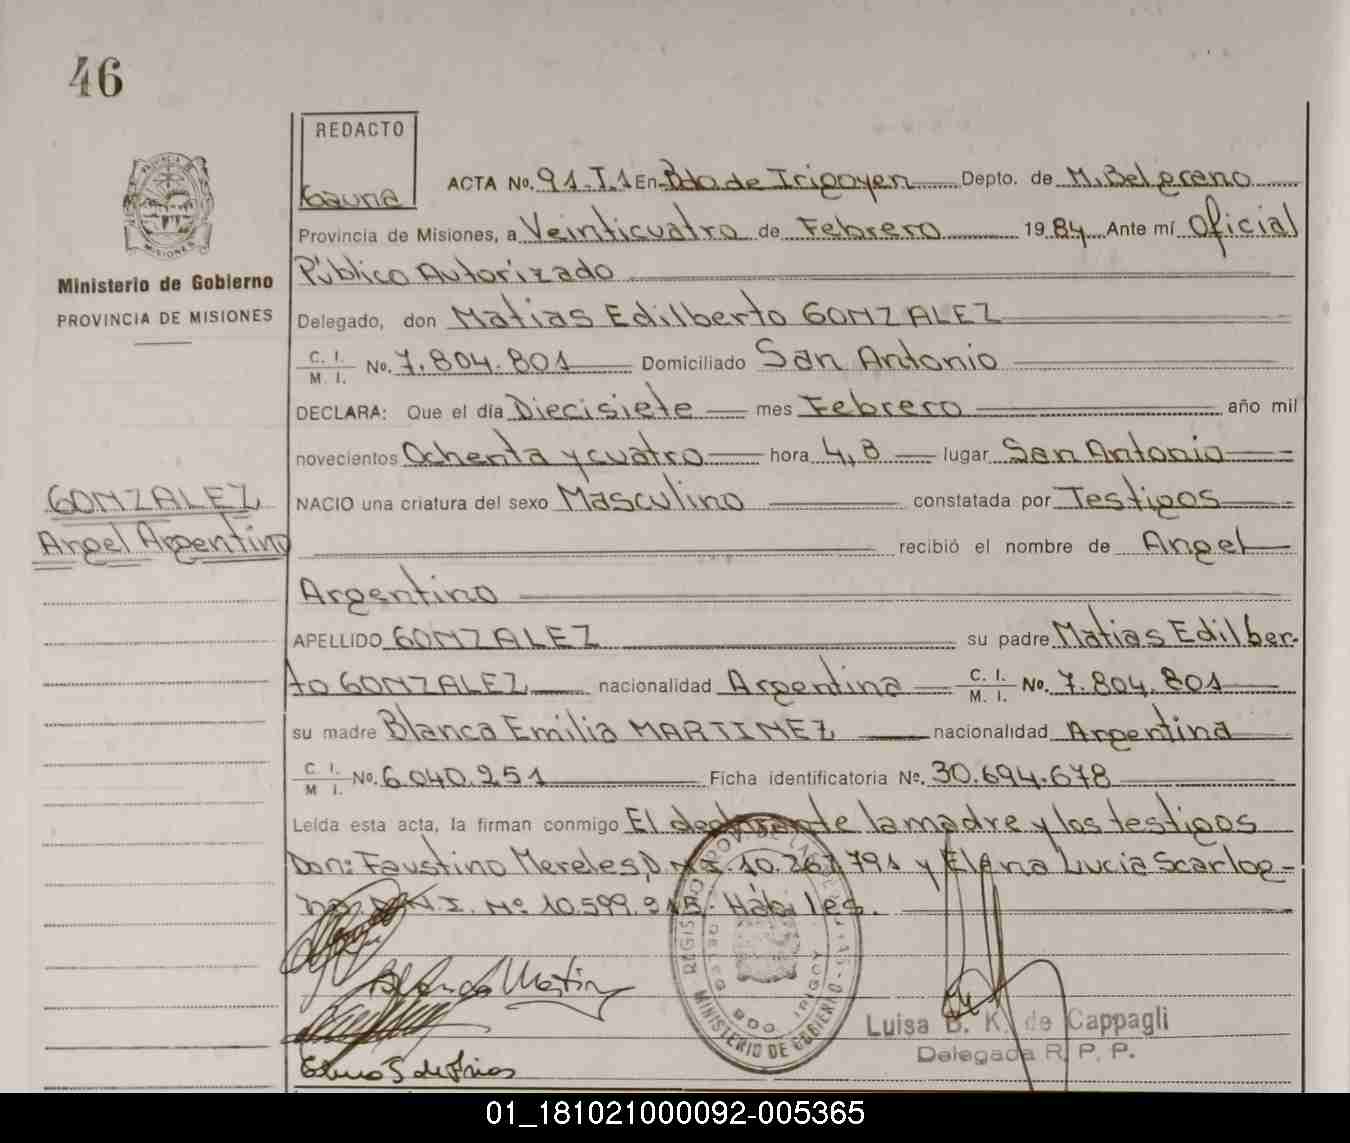 46
REDACTO
Gauna
ACTA No. 91.T.1 En Bdo de Irigoyen Depto. de M. Belgrano
Provincia de Misiones, a Veinticuatro de Febrero 1984 Ante mí Oficial
Público Autorizado
Delegado, don Matias Edilberto GONZALEZ
C. I.
M. I. No. 7.804.801 Domiciliado San Antonio
DECLARA: Que el día Diecisiete mes Febrero año mil
novecientos Ochenta y cuatro hora 4,8 lugar San Antonio
NACIO una criatura del sexo Masculino constatada por Testigos
recibió el nombre de Angel
Argentino
APELLIDO GONZALEZ su padre Matias Edilber-
to GONZALEZ nacionalidad Argentina C. I. M. I. No. 7.804.801
su madre Blanca Emilia MARTINEZ nacionalidad Argentina
C. I.
M I. No. 6.040.251 Ficha identificatoria No. 30.694.678
Leída esta acta, la firman conmigo El declarante la madre y los testigos
Don: Faustino Mereles, D.N.I. 10.267.791 y Elena Lucia Scarlog-
D.N.I. Nº 10.599. Hábiles.
Blanca Martin
Elena S de Frias
Ministerio de Gobierno
PROVINCIA DE MISIONES
GONZALEZ
Angel Argentino
PROVINCIA DE
MISIONES
MINISTERIO DE GOBIERNO
Luisa B. K. de Cappagli
Delegada R. P. P.
01_181021000092-005365